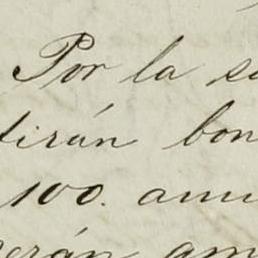 Por la
tirán bon
100. anu
erán am